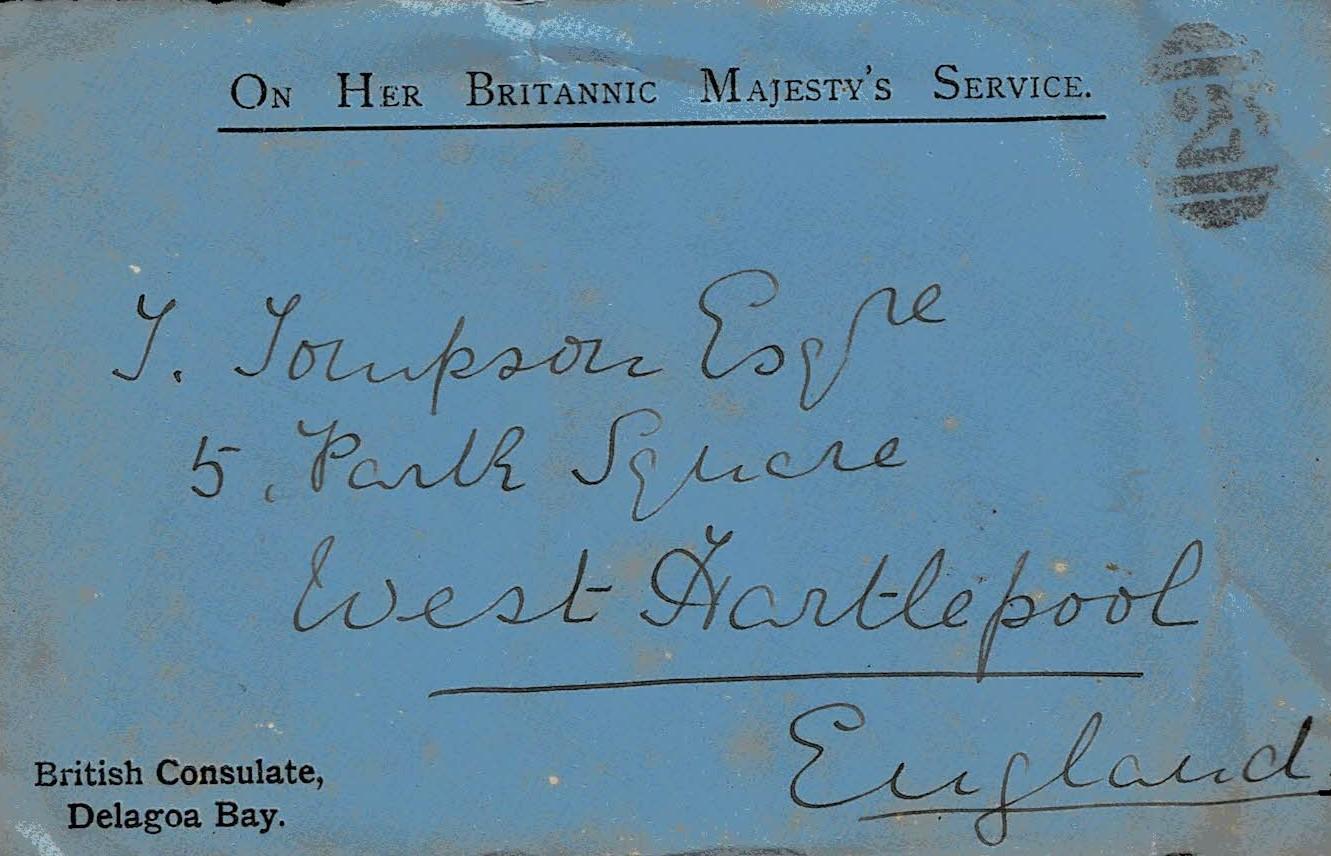 ON HER BRITANNIC MAJESTY'S SERVICE.
2
T. Tompson Esqre
5, Park Square
West Hartlepool
England
British Consulate,
Delagoa Bay.